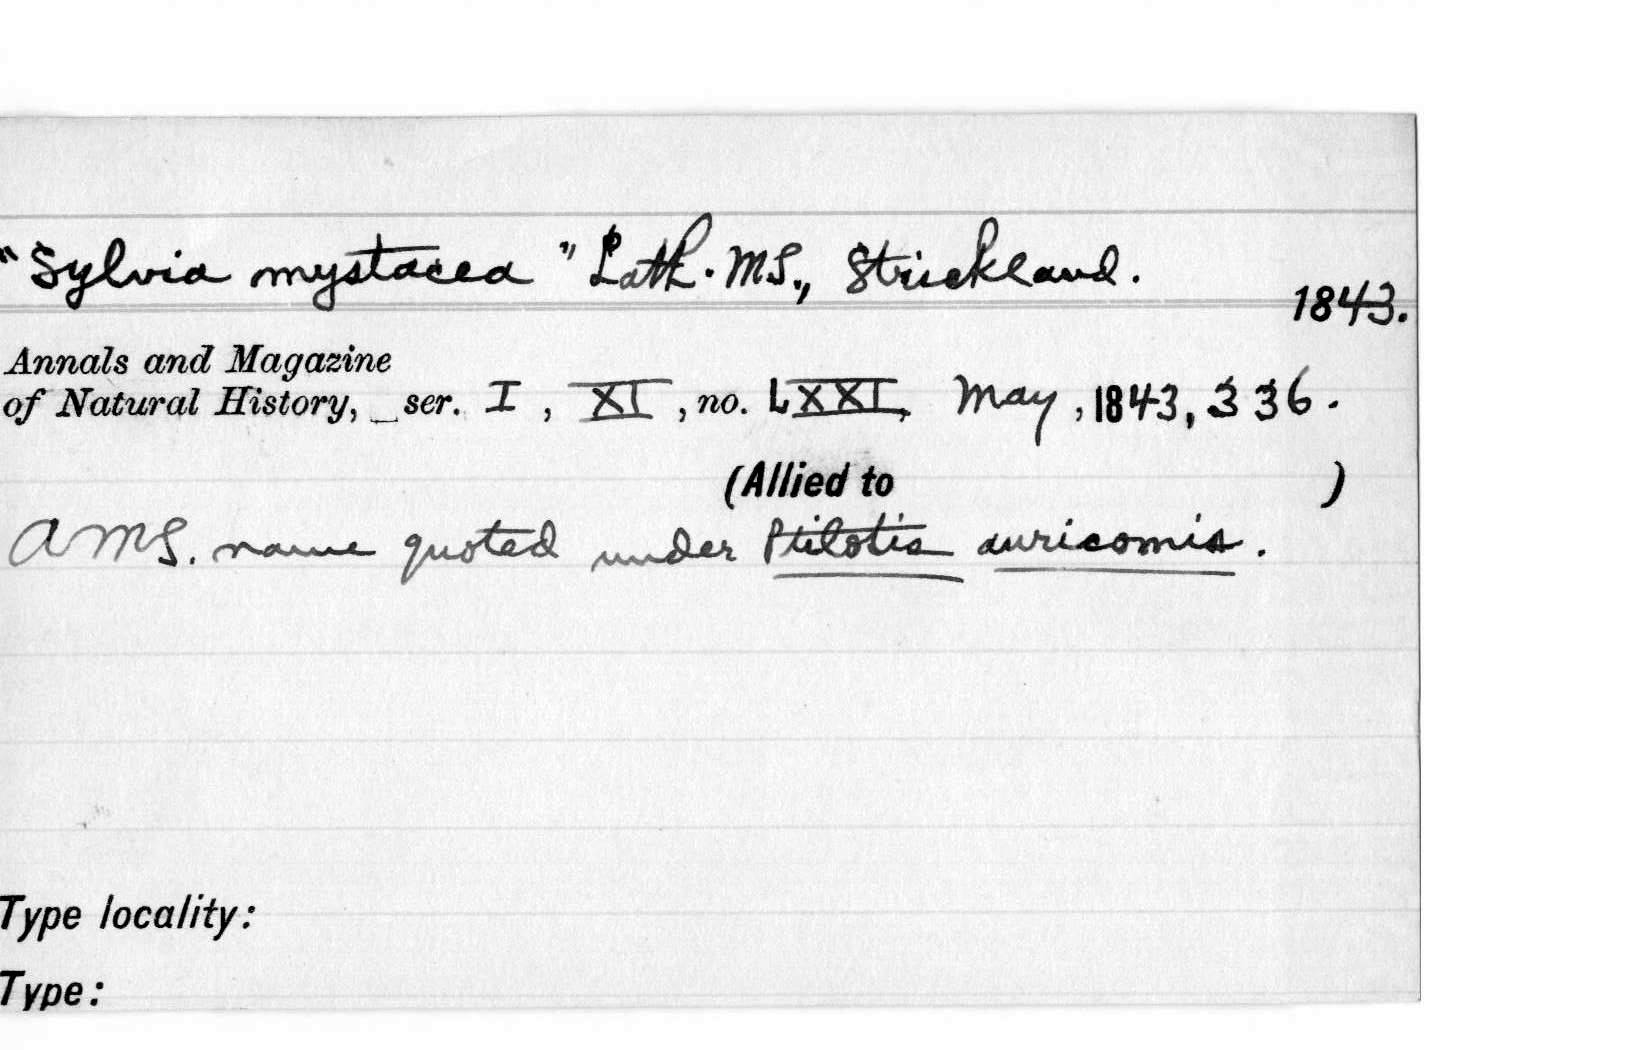 "Sylvia mystacea" Lath. MS., Strickland.
1843.
Annals and Magazine
of Natural History, _ser. I, XI, no. LXXI, May, 1843, 336.
(Allied to )
A MS. name quoted under Ptilotis auricomis.
Type locality:
Type: